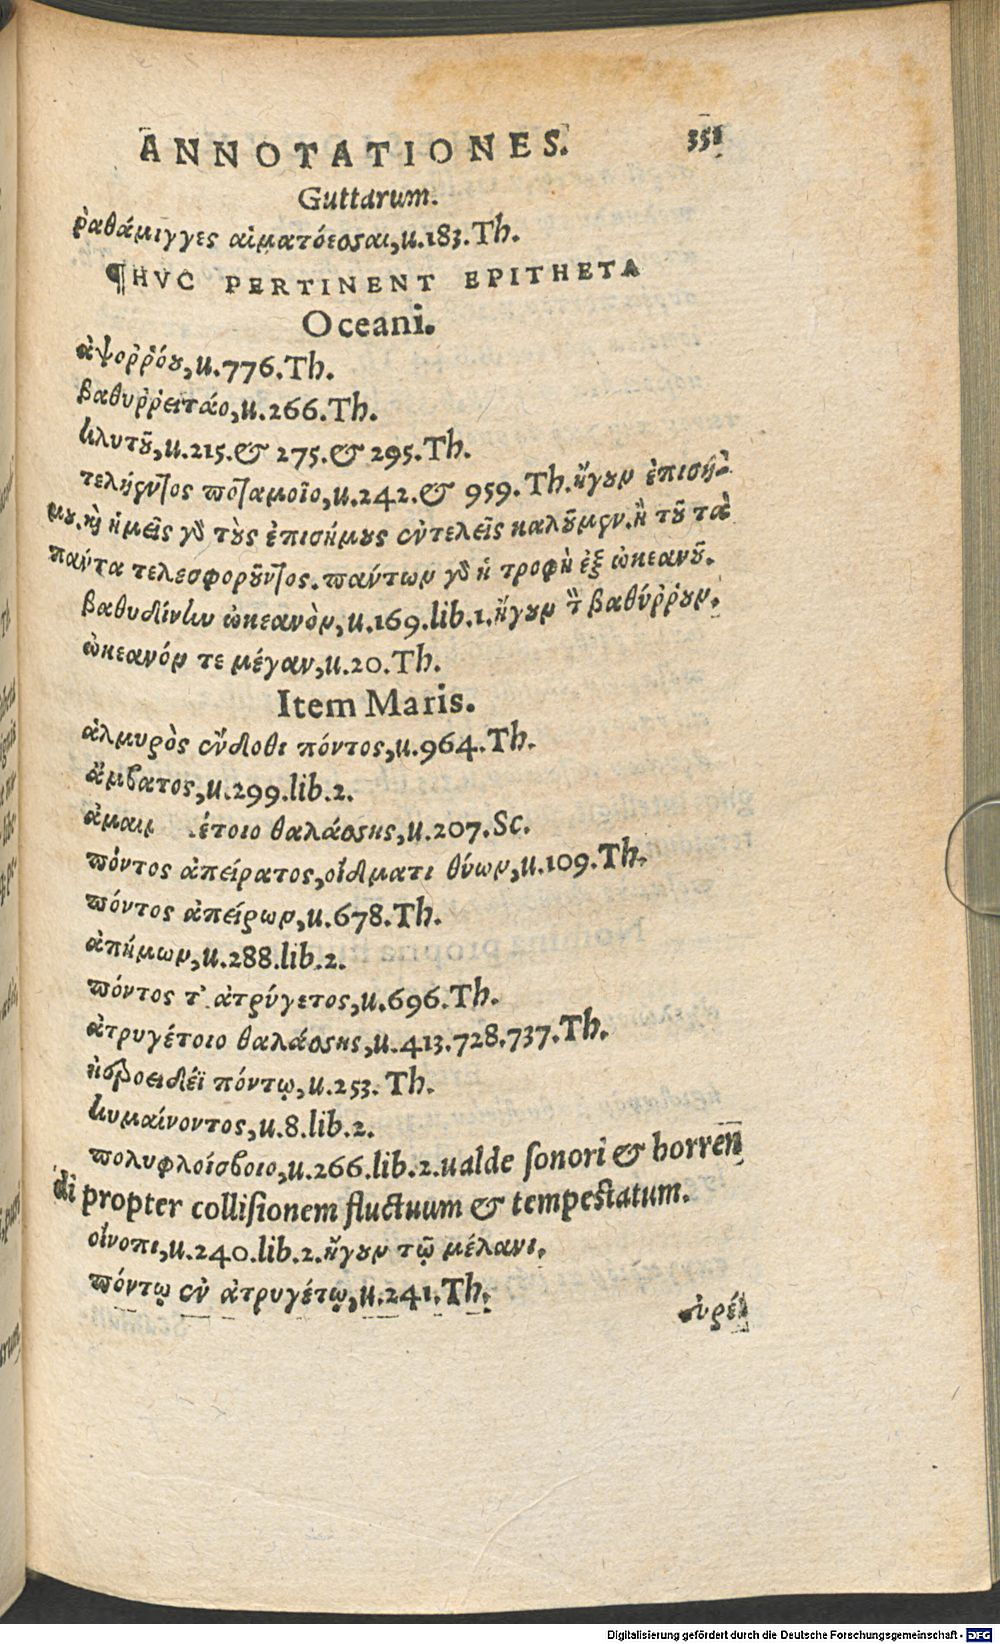 ANNOTATIONES. 351
Guttarum.
ῥαθάμιγγες αἱματόεσσαι, u.183.Th.
¶HVC PERTINENT EPITHETA
Oceani.
ἀψοῤῥόου, u.776.Th.
βαθυῤῥείταο, u.266.Th.
κλυτοῦ, u.215.& 275.& 295.Th.
τελήεντος ποταμοῖο, u.242.& 959.Th. ἤγουν ἐπισή-
μου. καὶ ἡμεῖς γὰρ τοὺς ἐπισήμους ἐντελεῖς καλοῦμεν. ἢ τοῦ τὰ
πάντα τελεσφοροῦντος. πάντων γὰρ ἡ τροφὴ ἐξ ὠκεανοῦ.
βαθυδίνην ὠκεανὸν, u.169.lib.1. ἤγουν τὸν βαθύῤῥουν.
ὠκεανόν τε μέγαν, u.20.Th.
Item Maris.
ἁλμυρὸς ἔνδοθι πόντος, u.964.Th.
ἄμβατος, u.299.lib.2.
ἀμαιμ έτοιο θαλάσσης, u.207.Sc.
πόντος ἀπείρατος, οἴδματι θύων, u.109.Th.
πόντος ἀπείρων, u.678.Th.
ἀπήμων, u.288.lib.2.
πόντος τ' ἀτρύγετος, u.696.Th.
ἀτρυγέτοιο θαλάσσης, u.413.728.737.Th.
ἠεροειδέϊ πόντῳ, u.253. Th.
κυμαίνοντος, u.8.lib.2.
πολυφλοίσβοιο, u.266.lib.2. ualde sonori & horren
di propter collisionem fluctuum & tempestatum.
οἴνοπι, u.240.lib.2. ἤγουν τῷ μέλανι.
πόντῳ ἐν ἀτρυγέτῳ, u.241.Th.
εὐρέ
Digitalisierung gefördert durch die Deutsche Forschungsgemeinschaft - DFG